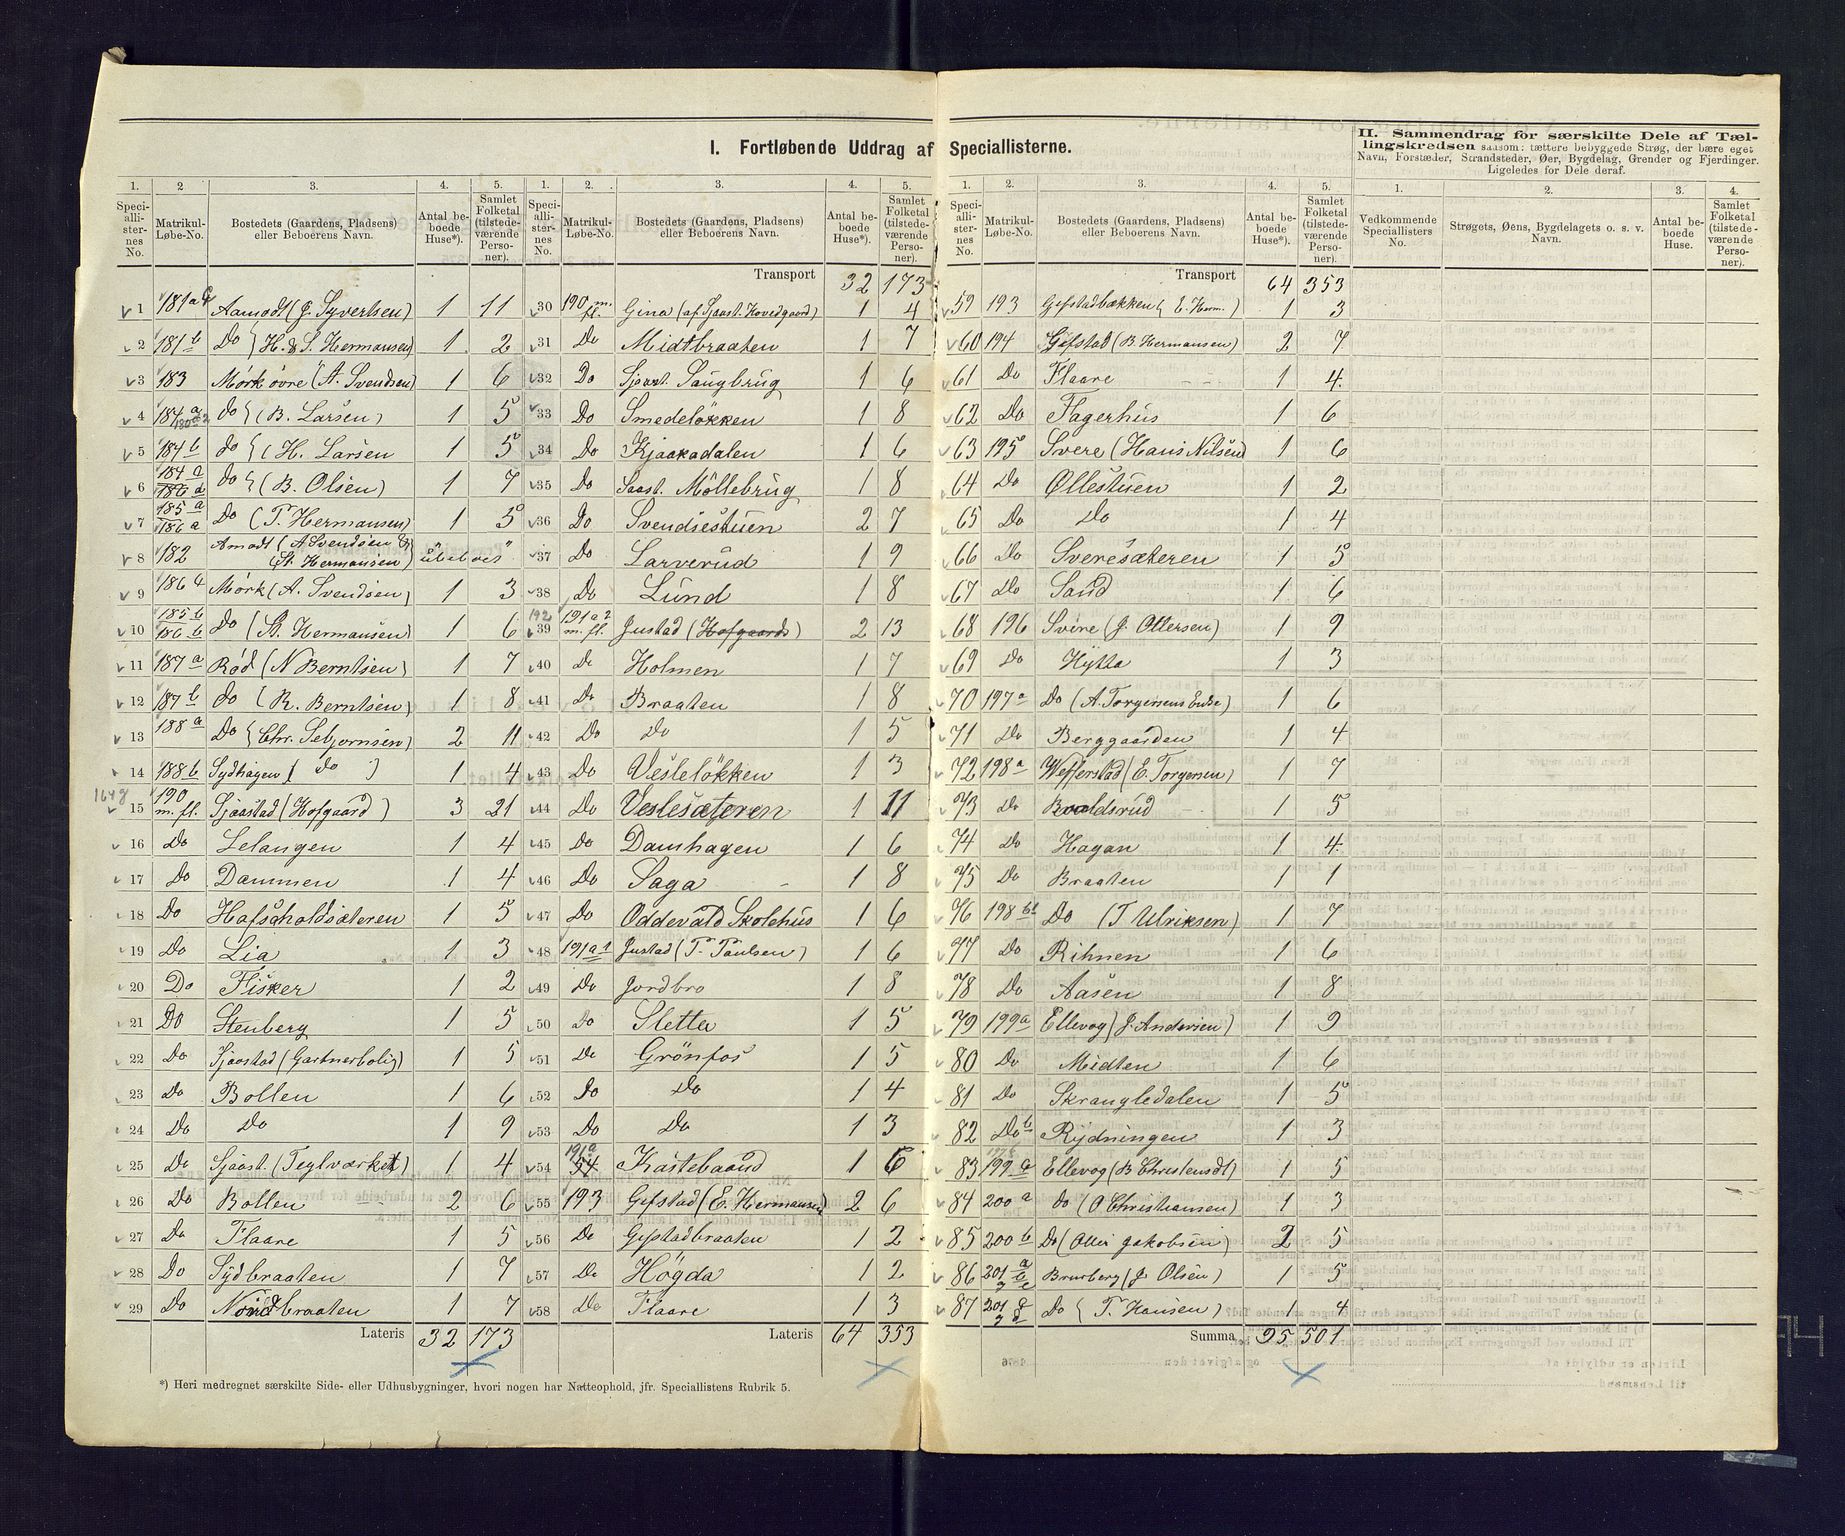 I. Fortløbende Uddrag af Speciallisterne.
II. Sammendrag for særskilte Dele af Tæl-
lingskredsen saasom: tættere bebyggede Strøg, der bære eget
Navn, Forstæder, Strandsteder, Øer, Bygdelag, Grender og Fjerdinger.
Ligeledes for Dele deraf.
1. 2 3. 4. 5.
Speciallisternes No. Matrikul-Løbe-No. Bostedets (Gaardens, Pladsens) eller Beboerens Navn. Antal beboede Huse*). Samlet Folketal (tilstedeværende Personer).
1 181a Aamodt (J. Syvertsen) 1 11
2 181b Do (H. & S. Hermansen) 1 2
3 183 Mørk øvre (A. Svendsen) 1 6
4 184a do (B. Larsen) 1 5
5 184b do (H. Larsen 1 5
6 184a 186d do (B. Olsen) 1 7
7 185a 186a Do (T. Hermansen) 1 5
8 182 Amodt (A. Svendsen & St. Hermansen) ubeboet
9 186 4 Mørk (A. Svendsen) 1 3
10 185b 186b Do (St. Hermansen) 1 6
11 187a Rød (N Berntsen) 1 7
12 187b do (R. Berntsen) 1 8
13 188a Do (Chr. Sebjornsen) 2 11
14 188b Sydhagen ( Do ) 1 4
1648
15 190 m. fl. Sjaastad (Hofgaard) 3 21
16 Do Lelangen 1 4
17 Do Dammen 1 4
18 Do Hafsaholdsæteren 1 5
19 Do Lia 1 3
20 Do Flsker 1 2
21 Do Stenberg 1 5
22 Do Sjaastad (Gartnerbolig) 1 5
23 Do Bollen 1 6
24 Do Do 1 9
25 Do Sjaast. (Teglværket) 1 4
26 Do Bollen 2 6
27 Do Flaare 1 5
28 Do Sydbraaten 1 7
29 Do Nordbraaten 1 7
Lateris 32 173
1. 2. 3. 4. 5.
Speciallisternes No. Matrikul-Løbe-No. Bostedets (Gaardens, Pladsens) eller Beboerens Navn. Antal beboede Huse*). Samlet Folketal (tilstedeværende Personer).
Transport 32 173
30 190 m. fl. Gina (af Sjaast. Hovedgaard) 1 4
31 Do Midtbraaten 1 7
32 Do Sjaast. Saugbrug 1 6
33 Do Smedeløkken 1 8
34 Do Kjaakadalen 1 6
35 Do Saast. Möllebrug 1 8
36 Do Svendsestuen 2 7
37 Do Larverud 1 9
38 Do Lund 1 8
39 192 191a2 m. fl. Justad (Hofgaards) 2 13
40 Do Holmen 1 7
41 Do Braaten 1 8
42 Do Do 1 5
43 Do Vesleløkken 1 3
44 Do Veslesæteren 1 11
45 Do Damhagen 1 6
46 Do Saga 1 8
47 Do Oddevald Skolehus 1 6
48 191a1 Justad (T. Paulsen) 1 6
49 Do Jordbro 1 8
50 Do Sletta 1 5
51 Do Grönfos 1 5
52 Do Do 1 4
53 Do Do 1 3
54 191a Kastebaand 1 6
55 193 Gifstad (E. Hermansen) 2 6
56 Do Gifstadbraaten 1 2
57 Do Högda 1 2
58 Do Flaare 1 3
Lateris 64 353
*) Heri medregnet særskilte Side- eller Udhusbygninger, hvori nogen har Natteophold, jfr. Speciallistens Rubrik 5.
1. 2. 3. 4. 5.
Speciallisternes No. Matrikul-Løbe-No. Bostedets (Gaardens, Pladsens) eller Beboerens Navn. Antal beboede Huse*). Samlet Folketal (tilstedeværende Personer).
Transport 64 353
59 193 Gifstadbækken (E. Herm.) 1 3
60 194 Gifstad (B. Hermansen) 2 7
61 Do Flaare 1 4
62 Do Fagerhus 1 6
63 195 Svere (Hans Nilsen) 1 6
64 Do Øllestuen 1 2
65 Do Do 1 4
66 Do Sveresæteren 1 5
67 Do Sand 1 6
68 196 Svire (J. Ollersen) 1 9
69 Do Hytta 1 3
70 197a Do (A. Torgersens Enke) 1 6
71 Do Berggaarden 1 4
72 198a Wefferstad (E. Torgersen) 1 7
73 Do Boaldsrud 1 5
74 Do Hagan 1 4
75 Do Braaten 1 1
76 198b1 Do (T Ulriksen) 1 7
77 Do Rihnen 1 6
78 Do Aasen 1 8
79 199a Ellevog (J. Andersen) 1 9
80 Do Midten 1 6
81 Do Skrangledalen 1 5
82 Do b Rydningen 1 3
83 199 Ellevog (B Christensdt) 1 5
84 200a do (O Christiansen) 1 3
85 200b Do (Oller Jakobsen) 2 5
86 201 a b c Brurberg (J. Olsen) 1 5
87 201 d Do (T. Hansen) 1 4
Summa 95 501
1. 2. 3. 4.
Vedkommende Speciallisters No. Strøgets, Øens, Bygdelagets o. s. v. Navn. Antal beboede Huse. Samlet Folketal (tilstedeværende Personer).